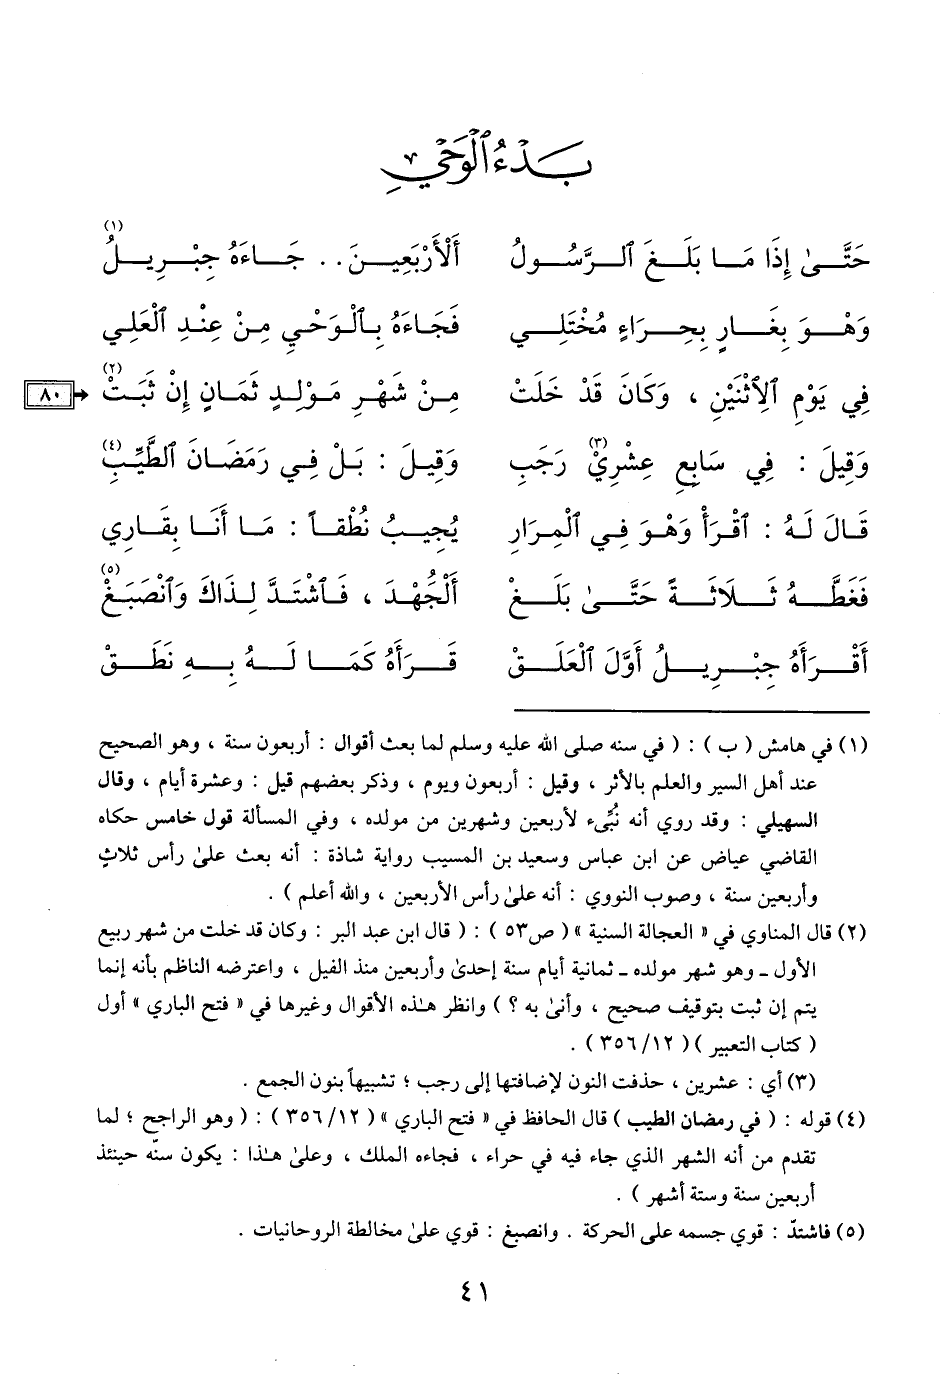 بَدْءُ ٱلْوَحْيِ
حَتَّىٰ إِذَا مَا بَلَغَ ٱلرَّسُولُ أَلْأَرْبَعِينَ.. جَاءَهُ جِبْرِيلُ(١)
وَهْوَ بِغَارٍ بِحِرَاءٍ مُخْتَلِي فَجَاءَهُ بِٱلْوَحْيِ مِنْ عِنْدِ ٱلْعَلِي
فِي يَوْمِ ٱلِٱثْنَيْنِ ، وَكَانَ قَدْ خَلَتْ مِنْ شَهْرِ مَوْلِدٍ ثَمَانٍ إِنْ ثَبَتْ(٢) ٨٠
وَقِيلَ : فِي سَابِعِ عِشْرِيْ(٣) رَجَبِ وَقِيلَ : بَلْ فِي رَمَضَانَ ٱلطَّيِّبِ(٤)
قَالَ لَهُ : ٱقْرَأْ وَهْوَ فِي ٱلْمِرَارِ يُجِيبُ نُطْقاً : مَا أَنَا بِقَارِي
فَغَطَّهُ ثَلَاثَةً حَتَّىٰ بَلَغْ أَلْجُهْدَ ، فَٱشْتَدَّ لِذَاكَ وَٱنْصَبَغْ(٥)
أَقْرَأَهُ جِبْرِيلُ أَوَّلَ ٱلْعَلَقْ قَرَأَهُ كَمَا لَهُ بِهِ نَطَقْ
(١) في هامش ( ب ) : ( في سنه صلى الله عليه وسلم لما بعث أقوال : أربعون سنة ، وهو الصحيح
عند أهل السير والعلم بالأثر ، وقيل : أربعون ويوم ، وذكر بعضهم قيل : وعشرة أيام ، وقال
السهيلي : وقد روي أنه نُبِّىء لأربعين وشهرين من مولده ، وفي المسألة قول خامس حكاه
القاضي عياض عن ابن عباس وسعيد بن المسيب رواية شاذة : أنه بعث علىٰ رأس ثلاثٍ
وأربعين سنة ، وصوب النووي : أنه علىٰ رأس الأربعين ، والله أعلم ) .
(٢) قال المناوي في « العجالة السنية » ( ص٥٣ ) : ( قال ابن عبد البر : وكان قد خلت من شهر ربيع
الأول ـ وهو شهر مولده ـ ثمانية أيام سنة إحدىٰ وأربعين منذ الفيل ، واعترضه الناظم بأنه إنما
يتم إن ثبت بتوقيف صحيح ، وأنىٰ به ؟ ) وانظر هـٰذه الأقوال وغيرها في « فتح الباري » أول
( كتاب التعبير ) ( ١٢/ ٣٥٦ ) .
(٣) أي : عشرين ، حذفت النون لإضافتها إلى رجب ؛ تشبيهاً بنون الجمع .
(٤) قوله : ( في رمضان الطيب ) قال الحافظ في « فتح الباري » ( ١٢/ ٣٥٦ ) : ( وهو الراجح ؛ لما
تقدم من أنه الشهر الذي جاء فيه في حراء ، فجاءه الملك ، وعلىٰ هـٰذا : يكون سنّه حينئذ
أربعين سنة وستة أشهر ) .
(٥) فاشتدّ : قوي جسمه على الحركة . وانصبغ : قوي علىٰ مخالطة الروحانيات .
٤١